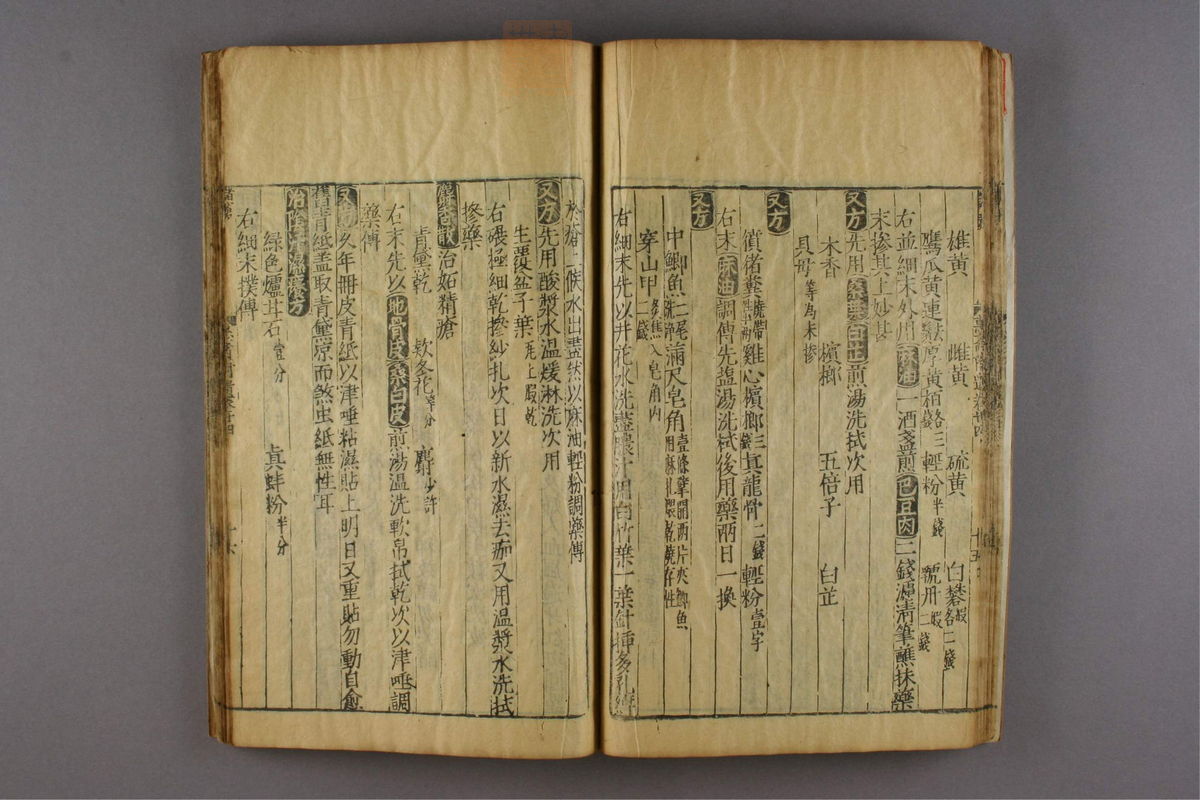 雄黄 雌黄 硫黄 白礬各二錢
鷹爪黄連 厚黄柏各三 輕粉半錢
右並細末外用麻油一酒盞煎巴豆肉二錢濾清筆蘸抹藥
末摻其上妙甚
又方先用桑葉白芷煎湯洗拭次用
木香 檳榔 五倍子 白芷
貝母等為末摻
又方
猪糞 雞心檳榔三錢真龍骨二錢輕粉壹字
右末麻油調傅先塩湯洗拭後用藥兩日一換
又方
中鯽魚二尾滿尺皂角壹條 開兩片夾鯽魚用麻扎 乾燒存性
穿山甲二錢 焦入皂角内
右細末先以井花水洗盡膿汁用白竹葉一葉針挿多孔
於瘡上候水出盡然以麻油輕粉調藥傅
又方先用酸漿水温煖淋洗次用
生覆盆子葉瓦上煅乾
右碾極細乾摻紗扎次日以新水濕去痂又用温漿水洗拭
摻藥
麝香散治妬精瘡
青黛 欵冬花等分 麝少許
右末先以地骨皮桑白皮煎湯温洗軟帛拭乾次以津唾調
藥傅
又方久年冊皮青紙以津唾粘濕貼上明日又重貼勿動自愈
舊青紙盖取青黛凉而煞虫紙無性耳
治陰汗濕癢方
緑色爐甘石壹分 真蚌粉半分
右細末撲傅